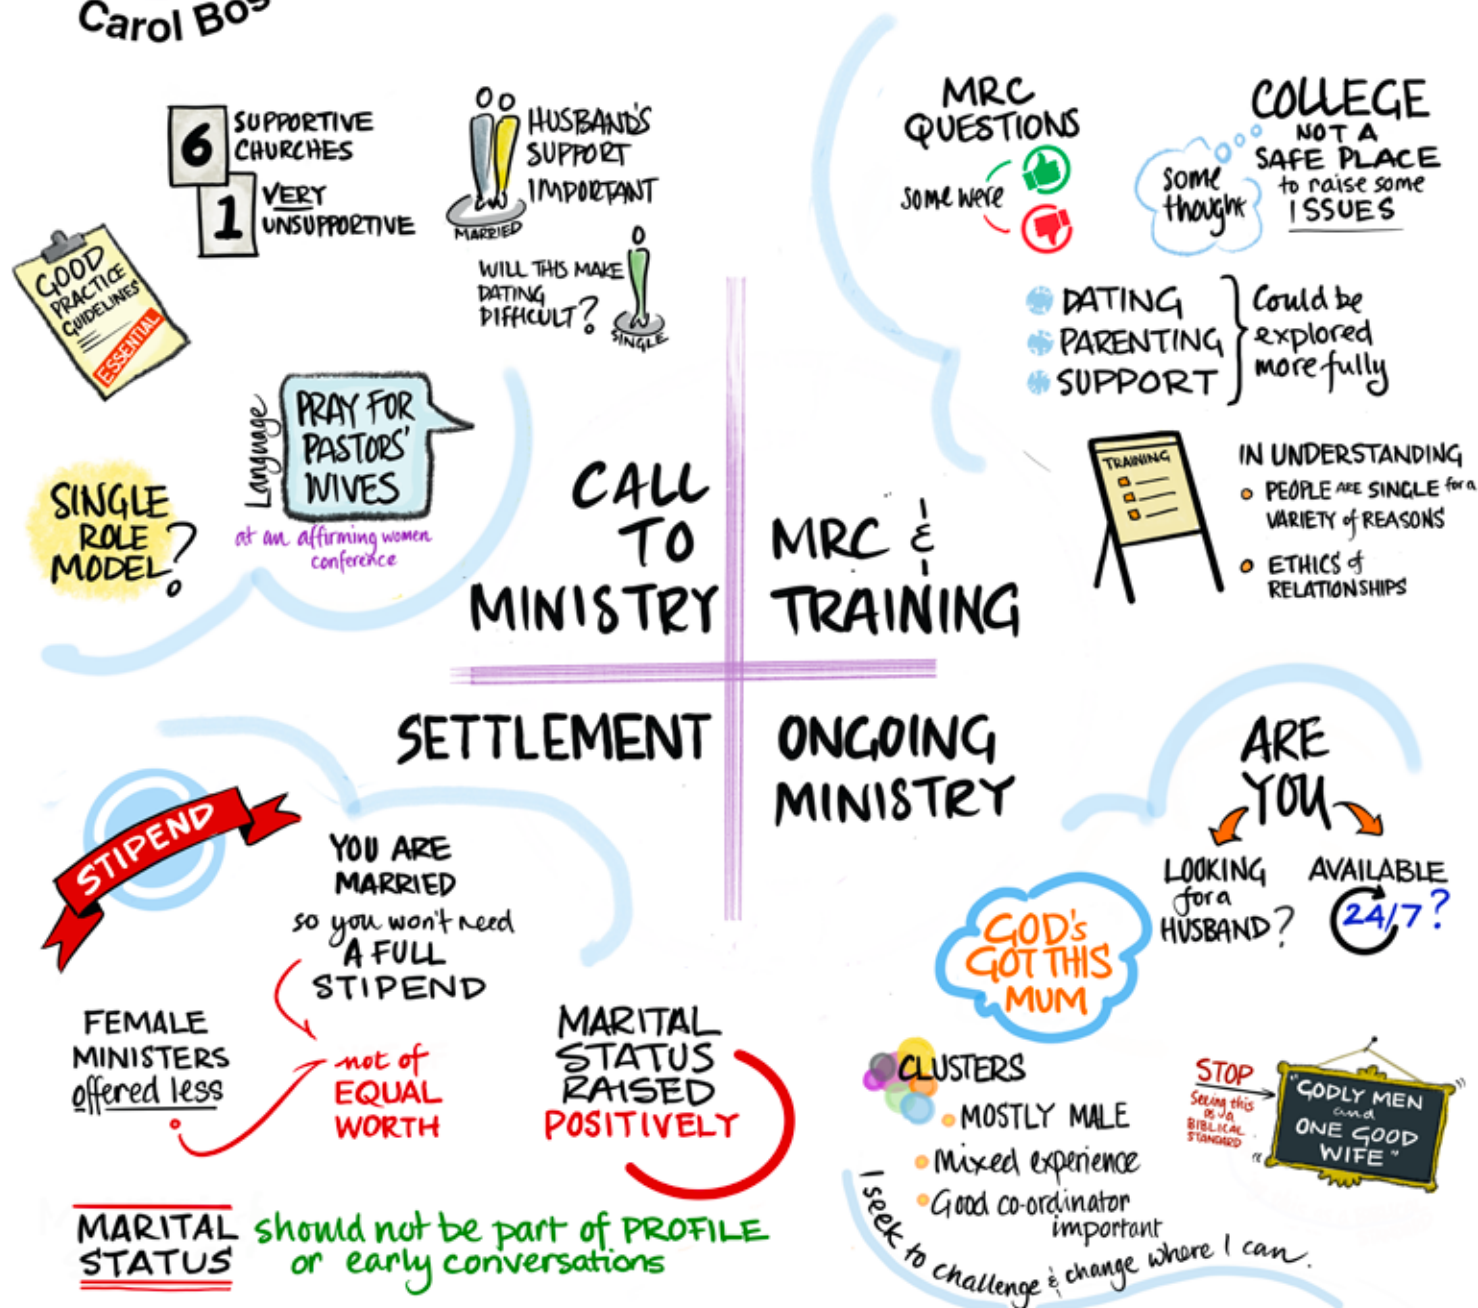 Carol Bos
6 SUPPORTIVE
CHURCHES
1 VERY
UNSUPPORTIVE
HUSBAND'S
SUPPORT
IMPORTANT
MARRIED
WILL THIS MAKE
DATING
DIFFICULT?
SINGLE
GOOD
PRACTICE
GUIDELINES
ESSENTIAL
Language
PRAY FOR
PASTORS'
WIVES
at an affirming women
conference
SINGLE
ROLE
MODEL?
CALL
TO
MINISTRY
MRC
QUESTIONS
some were
COLLEGE
NOT A
SAFE PLACE
to raise some
ISSUES
some
thought
DATING
PARENTING
SUPPORT
Could be
explored
more fully
TRAINING
IN UNDERSTANDING
PEOPLE ARE SINGLE for a
VARIETY of REASONS
ETHICS of
RELATIONSHIPS
MRC &
TRAINING
SETTLEMENT
STIPEND
YOU ARE
MARRIED
so you won't need
A FULL
STIPEND
FEMALE
MINISTERS
offered less
not of
EQUAL
WORTH
MARITAL
STATUS
RAISED
POSITIVELY
MARITAL
STATUS
should not be part of PROFILE
or early conversations
ONGOING
MINISTRY
ARE
YOU
LOOKING
for a
HUSBAND?
AVAILABLE
24/7?
GOD's
GOT THIS
MUM
CLUSTERS
MOSTLY MALE
Mixed experience
Good co-ordinator
important
STOP
Seeing this
as a
BIBLICAL
STANDARD
"GODLY MEN
and
ONE GOOD
WIFE"
I seek to challenge & change where I can.